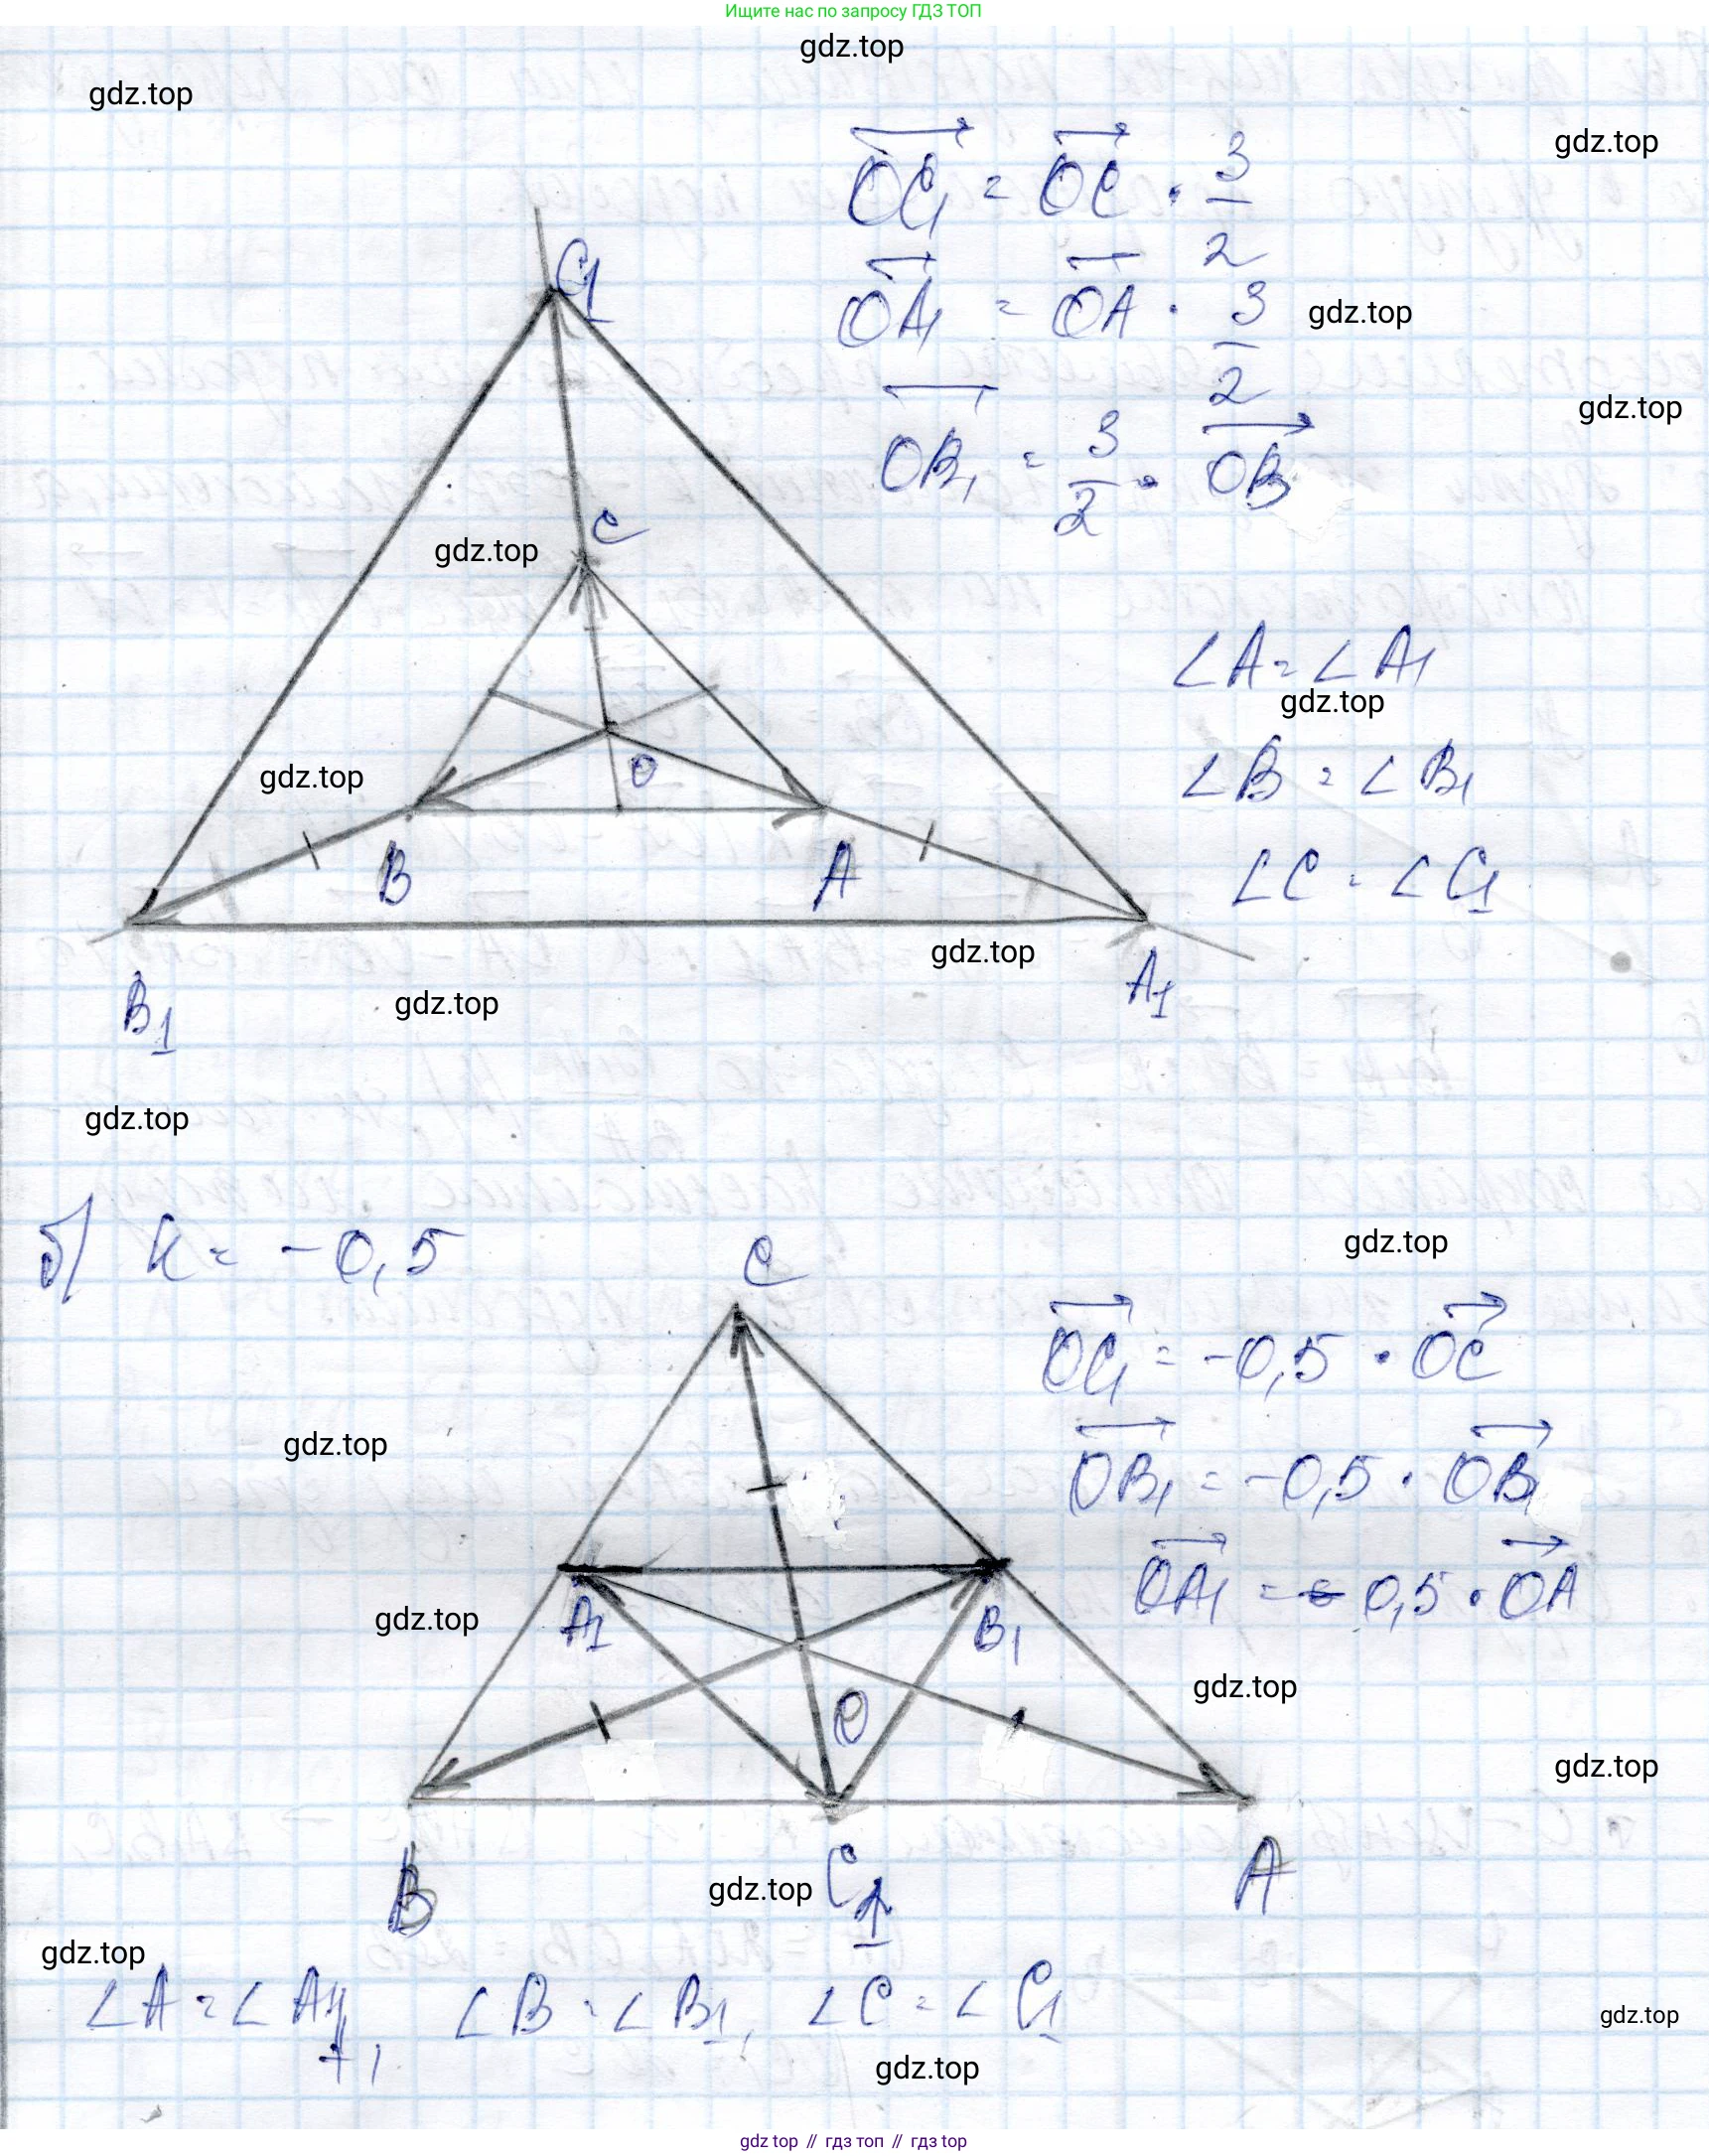 Ищите нас по запросу ГДЗ ТОП
gdz.top
gdz.top
gdz.top
OC₁ = OC · 3/2
OA₁ = OA · 3/2
gdz.top
gdz.top
OB₁ = 3/2 · OB
C₁
C
gdz.top
∠A = ∠A₁
gdz.top
∠B = ∠B₁
gdz.top
O
B
A
∠C = ∠C₁
gdz.top
B₁
A₁
gdz.top
gdz.top
б) k = -0,5
C
gdz.top
OC₁ = -0,5 · OC
gdz.top
OB₁ = -0,5 · OB
OA₁ = - 0,5 · OA
gdz.top
A₁
B₁
gdz.top
O
gdz.top
B
C₁
A
gdz.top
gdz.top
∠A = ∠A₁, ∠B = ∠B₁, ∠C = ∠C₁
gdz.top
gdz.top
gdz top // гдз топ // гдз top